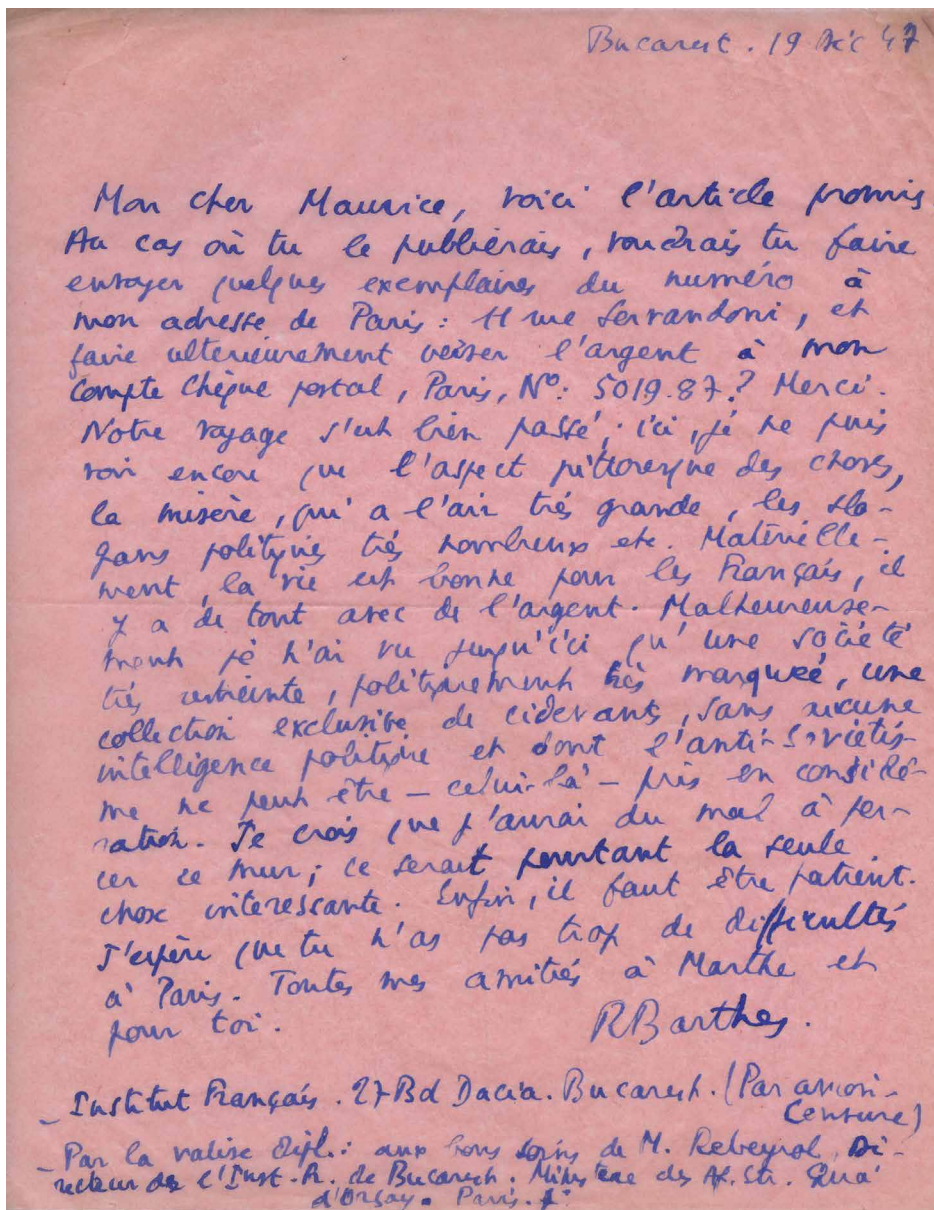 Bucarest. 19 Déc 47
Mon cher Maurice, voici l'article promis
Au cas où tu le publierais, voudrais tu faire
envoyer quelques exemplaires du numéro à
mon adresse de Paris : 11 rue Servandoni, et
faire ulterieurement verser l'argent à mon
Compte Chèque postal, Paris, Nº: 5019.87? Merci.
Notre voyage s'est bien passé; ici, je ne puis
voir encore que l'aspect pittoresque des choses,
la misère, qui a l'air très grande, les slo-
gans politiques très nombreux etc. Matérielle-
ment, la vie est bonne pour les Français, il
y a de tout avec de l'argent. Malheureuse-
ment je n'ai vu jusqu'ici qu'une société
très restreinte, politiquement très marquée, une
collection exclusive de cidevants, sans aucune
intelligence politique et dont l'anti-soviétis-
me ne peut être – celui-là – pris en considé-
ration. Je crois que j'aurai du mal à per-
cer ce mur; ce serait pourtant la seule
chose interessante. Enfin, il faut être patient.
J'espère que tu n'as pas trop de difficultés
à Paris. Toutes mes amitiés à Marthe et
pour toi.
RBarthes.
– Institut Français. 27 Bd Dacia. Bucarest. (Par avion-
Censure)
– Par la valise dipl.: aux bons soins de M. Rebeyrol, Di-
recteur de l'Inst. Fr. de Bucarest. Ministère des Af. Etr. Quai
d'Orsay. Paris.